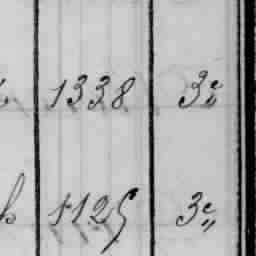 1338 3e
1125 3e